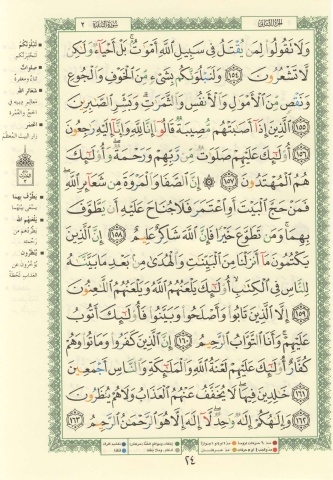 الجزء الثاني
٢
سورة البقرة
وَلَا تَقُولُوا۟ لِمَن يُقْتَلُ فِى سَبِيلِ ٱللَّهِ أَمْوَٰتٌۢ ۚ بَلْ أَحْيَآءٌ وَلَٰكِن
لَّا تَشْعُرُونَ ۝١٥٤ وَلَنَبْلُوَنَّكُم بِشَىْءٍ مِّنَ ٱلْخَوْفِ وَٱلْجُوعِ
وَنَقْصٍ مِّنَ ٱلْأَمْوَٰلِ وَٱلْأَنفُسِ وَٱلثَّمَرَٰتِ ۗ وَبَشِّرِ ٱلصَّٰبِرِينَ
۝١٥٥ ٱلَّذِينَ إِذَآ أَصَٰبَتْهُم مُّصِيبَةٌ قَالُوٓا۟ إِنَّا لِلَّهِ وَإِنَّآ إِلَيْهِ رَٰجِعُونَ
۝١٥٦ أُو۟لَٰٓئِكَ عَلَيْهِمْ صَلَوَٰتٌ مِّن رَّبِّهِمْ وَرَحْمَةٌ ۖ وَأُو۟لَٰٓئِكَ
هُمُ ٱلْمُهْتَدُونَ ۝١٥٧ إِنَّ ٱلصَّفَا وَٱلْمَرْوَةَ مِن شَعَآئِرِ ٱللَّهِ ۖ
فَمَنْ حَجَّ ٱلْبَيْتَ أَوِ ٱعْتَمَرَ فَلَا جُنَاحَ عَلَيْهِ أَن يَطَّوَّفَ
بِهِمَا ۚ وَمَن تَطَوَّعَ خَيْرًا فَإِنَّ ٱللَّهَ شَاكِرٌ عَلِيمٌ ۝١٥٨ إِنَّ ٱلَّذِينَ
يَكْتُمُونَ مَآ أَنزَلْنَا مِنَ ٱلْبَيِّنَٰتِ وَٱلْهُدَىٰ مِنۢ بَعْدِ مَا بَيَّنَّٰهُ
لِلنَّاسِ فِى ٱلْكِتَٰبِ ۙ أُو۟لَٰٓئِكَ يَلْعَنُهُمُ ٱللَّهُ وَيَلْعَنُهُمُ ٱللَّٰعِنُونَ
۝١٥٩ إِلَّا ٱلَّذِينَ تَابُوا۟ وَأَصْلَحُوا۟ وَبَيَّنُوا۟ فَأُو۟لَٰٓئِكَ أَتُوبُ
عَلَيْهِمْ ۚ وَأَنَا ٱلتَّوَّابُ ٱلرَّحِيمُ ۝١٦٠ إِنَّ ٱلَّذِينَ كَفَرُوا۟ وَمَاتُوا۟ وَهُمْ
كُفَّارٌ أُو۟لَٰٓئِكَ عَلَيْهِمْ لَعْنَةُ ٱللَّهِ وَٱلْمَلَٰٓئِكَةِ وَٱلنَّاسِ أَجْمَعِينَ
۝١٦١ خَٰلِدِينَ فِيهَا ۖ لَا يُخَفَّفُ عَنْهُمُ ٱلْعَذَابُ وَلَا هُمْ يُنظَرُونَ
۝١٦٢ وَإِلَٰهُكُمْ إِلَٰهٌ وَٰحِدٌ ۖ لَّآ إِلَٰهَ إِلَّا هُوَ ٱلرَّحْمَٰنُ ٱلرَّحِيمُ ۝١٦٣
٢٤
لنبلونكم
صلوات
شعائر الله
يطوف بهما
يلعنهم الله
ينظرون